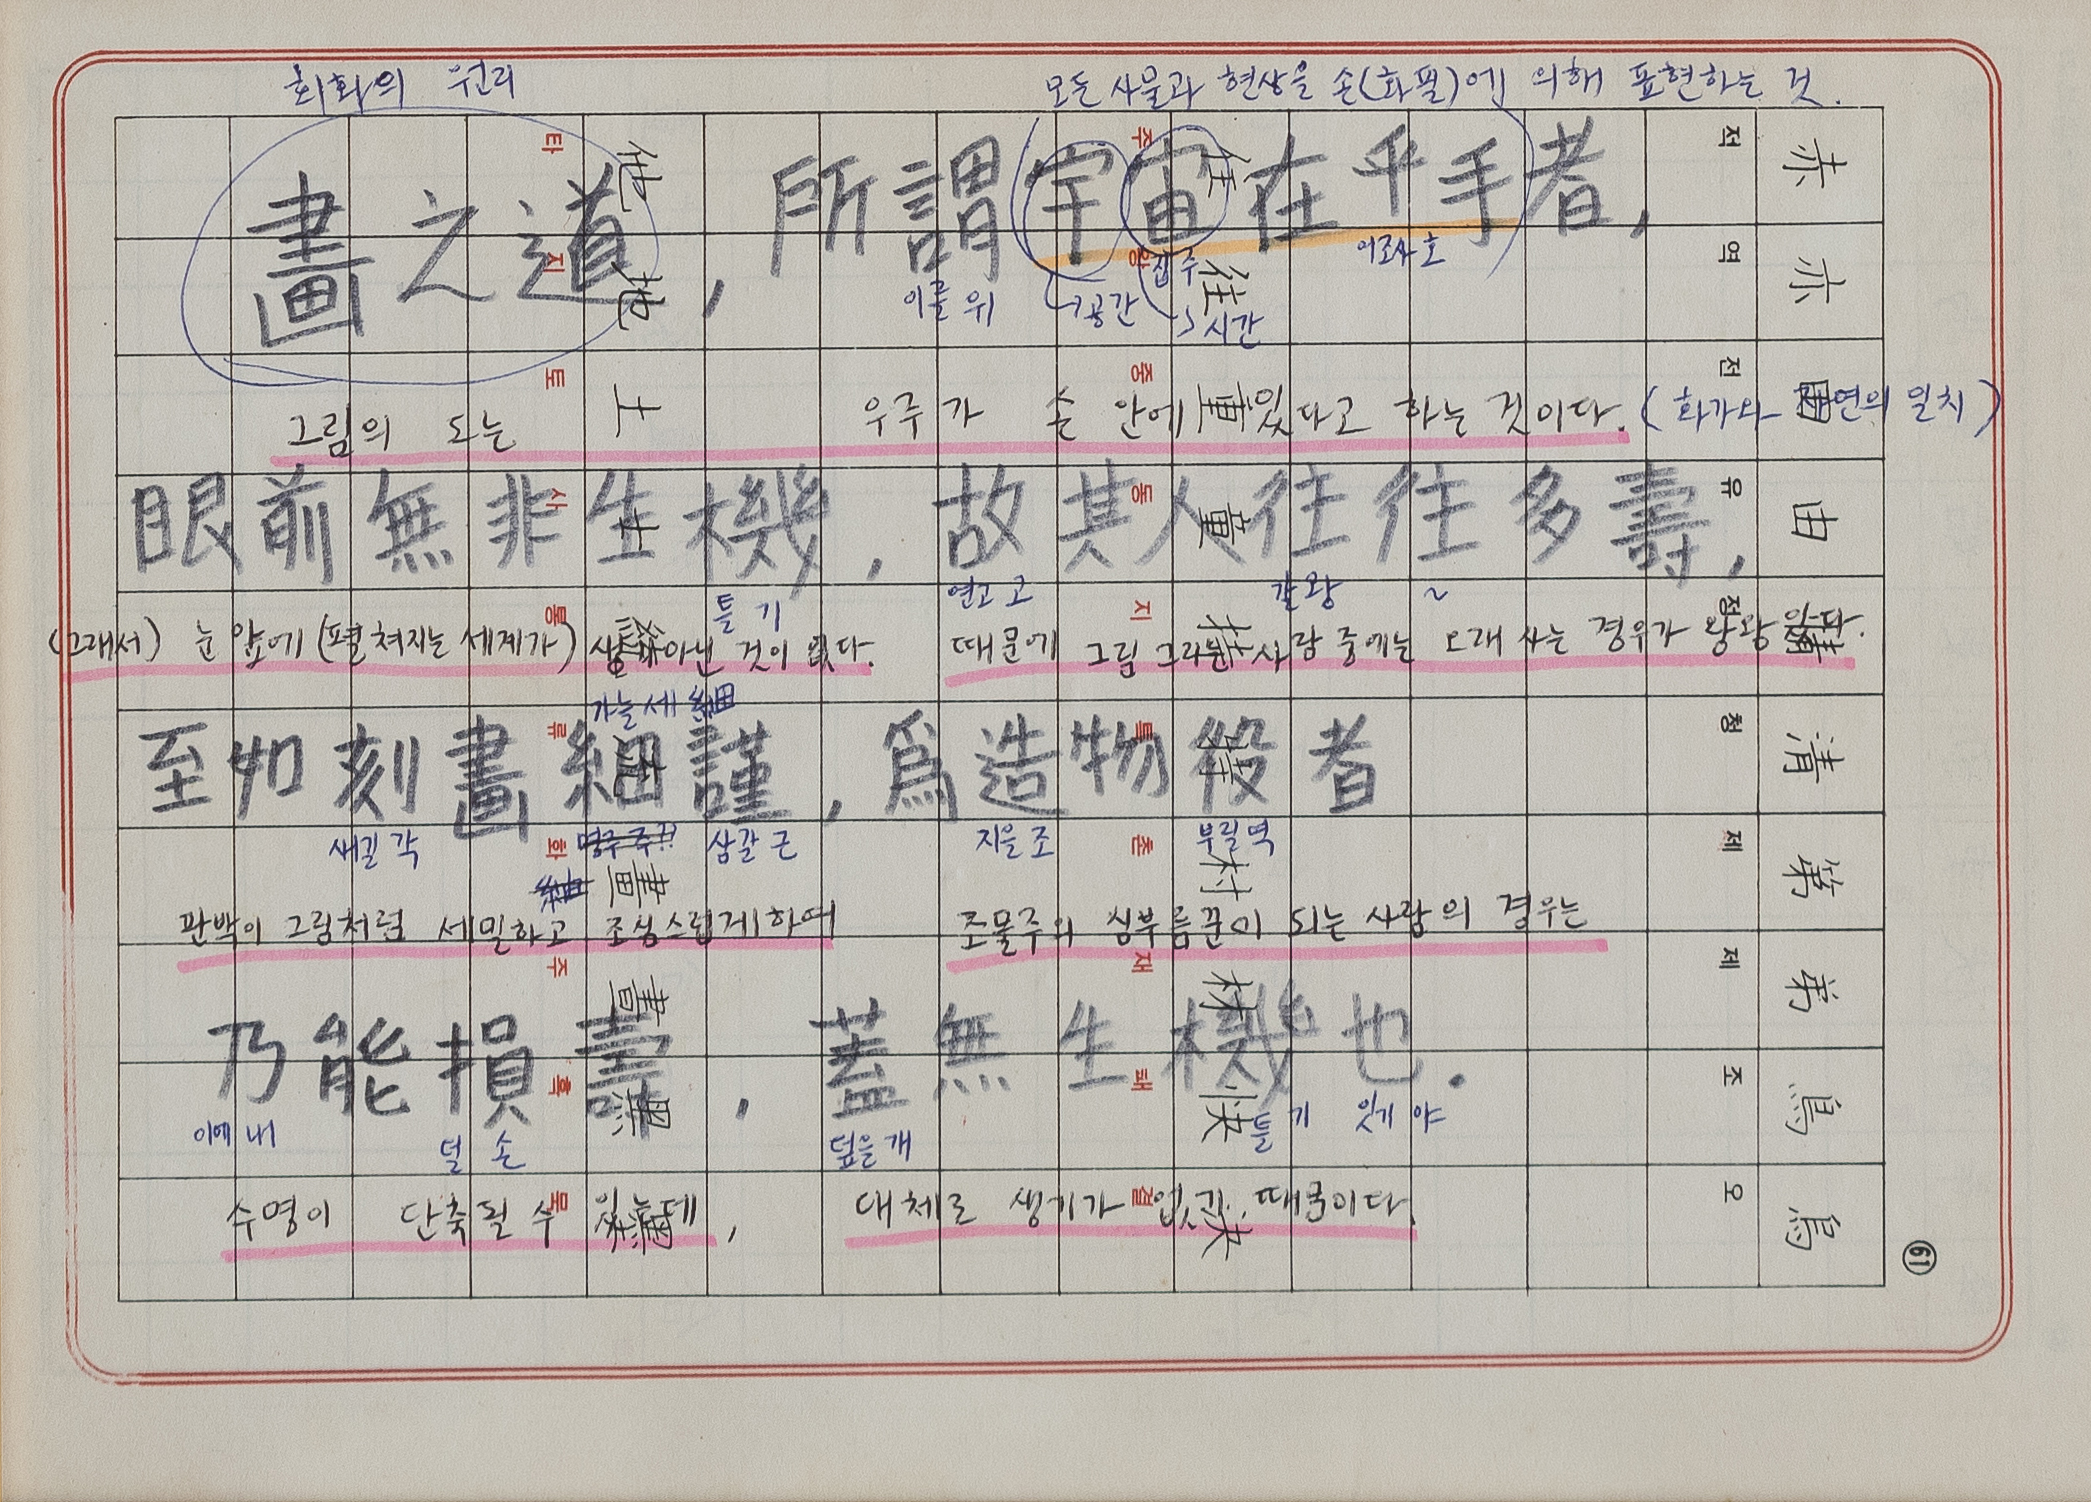 회화의 원리
모든 사물과 현상을 손(화필)에 의해 표현하는 것.
畫之道, 所謂宇宙在乎手者,
이를 위 공간 집 주 시간 어조사 호
그림의 도는 우주가 손 안에 있다고 하는 것이다. (화가와 자연의 일치)
眼前無非生機, 故其人往往多壽,
틀 기 연고 고 갈 왕 ~
(그래서) 눈 앞에 (펼쳐지는 세계가) 아닌 것이 없다. 때문에 그림 그리는 사람 중에는 오래 사는 경우가 왕왕 있다.
가늘 세 細
至如刻畫細謹, 爲造物役者
새길 각 삼갈 근 지을 조 부릴 역
판박이 그림처럼 세밀하고 조심스럽게 하여 조물주의 심부름꾼이 되는 사람의 경우는
乃能損壽, 蓋無生機也.
이에 내 덜 손 덮을 개 틀 기 잇기 야
수명이 단축될 수 있는데, 대체로 생기가 없기 때문이다.
저 赤
역 亦
전 田
유 由
정
청 清
제 第
제 弟
조 鳥
오 烏
주 住
왕 往
중 重
동 童
지 持
특 特
촌 村
재 材
쾌 快
결 決
타 他
지 地
토 土
사 士
통
류
화 畫
주 晝
흑 黑
묵 墨
61